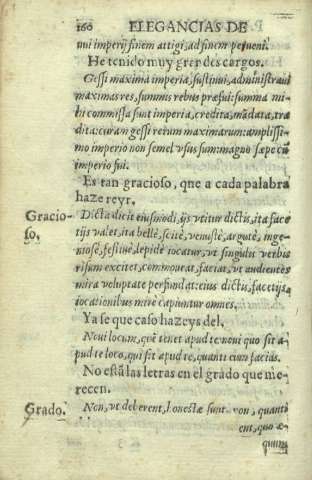 160 ELEGANCIAS DE
nui imperij finem attigi, ad finem perueni.
He tenido muy grandes cargos.
Gessi maxima imperia, sustinui, administraui
maximas res, summis rebus præfui: summa mi-
hi commissa sunt imperia, credita, mādata, tra
dita: curam gessi rerum maximarum: amplissi-
mo imperio non semel vsus sum: magno sæpe cū
imperio fui.
Es tan gracioso, que a cada palabra
haze reyr.
Gracio-
so.
Dicta dicit eiusmodi, ijs vtitur dictis, ita face
tijs valet, ita bellè, scitè, venustè, argutè, inge-
niosè, festiuè, lepidè iocatur, vt singulis verbis
risum excitet, commoueat, faciat, vt audientes
mira voluptate perfundat: eius dictis, facetijs,
iocationibus mirè capiuntur omnes.
Ya se que caso hazeys del.
Noui locum, quē tenet apud te: noui quo sit a-
pud te loco, qui sit apud te, quanti eum facias.
No estā las letras en el grado que me-
recen.
Grado.
Non, vt deberent, honestæ sunt: non, quanti
ent, quo æ-
quum